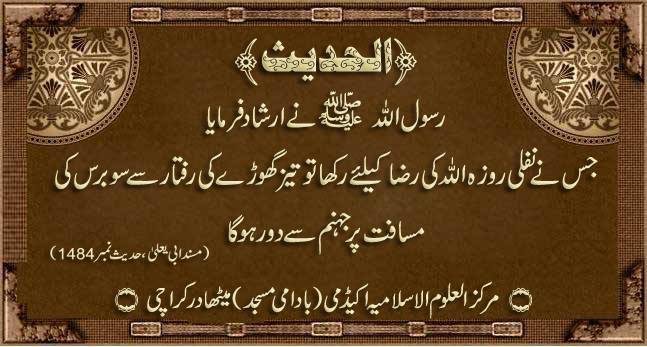 ﴿الحدیث﴾
رسول اللہ ﷺ نے ارشاد فرمایا
جس نے نفلی روزہ اللہ کی رضا کیلئے رکھا تو تیز گھوڑے کی رفتار سے سو برس کی
مسافت پر جہنم سے دور ہوگا
(مسند ابی یعلیٰ، حدیث نمبر 1484)
مرکز العلوم الاسلامیہ اکیڈمی (بادامی مسجد) میٹھادر کراچی